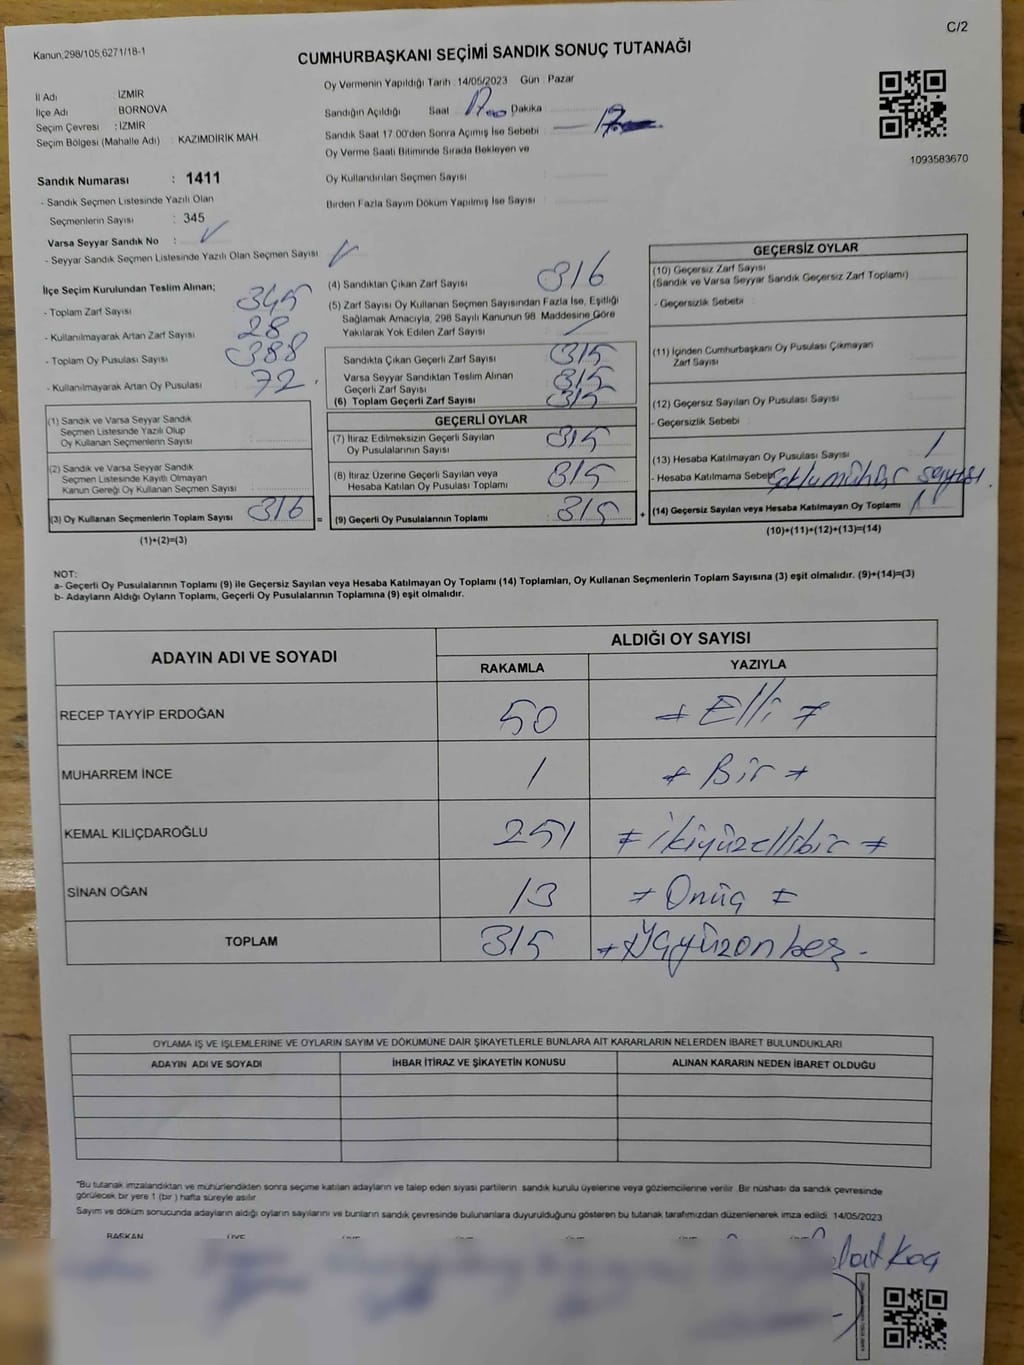 C/2
Kanun,298/105,6271/18-1
CUMHURBAŞKANI SEÇİMİ SANDIK SONUÇ TUTANAĞI
Oy Vermenin Yapıldığı Tarih : 14/05/2023 Gün : Pazar
İl Adı : İZMİR
İlçe Adı : BORNOVA
Seçim Çevresi : İZMİR
Seçim Bölgesi (Mahalle Adı) : KAZIMDİRİK MAH.
Sandığın Açıldığı Saat 17.00 Dakika
Sandık Saat 17.00'den Sonra Açımış İse Sebebi
Oy Verme Saati Bitiminde Sırada Bekleyen ve
Oy Kullandırılan Seçmen Sayısı
Birden Fazla Sayım Döküm Yapılmış İse Sayısı
1093583670
Sandık Numarası : 1411
- Sandık Seçmen Listesinde Yazılı Olan
Seçmenlerin Sayısı : 345
Varsa Seyyar Sandık No :
- Seyyar Sandık Seçmen Listesinde Yazılı Olan Seçmen Sayısı
İlçe Seçim Kurulundan Teslim Alınan;
- Toplam Zarf Sayısı 345
- Kullanılmayarak Artan Zarf Sayısı 28
- Toplam Oy Pusulası Sayısı 388
- Kullanılmayarak Artan Oy Pusulası 72
(1) Sandık ve Varsa Seyyar Sandık
Seçmen Listesinde Yazılı Olup
Oy Kullanan Seçmenlerin Sayısı
(2) Sandık ve Varsa Seyyar Sandık
Seçmen Listesinde Kayıtlı Olmayan
Kanun Gereği Oy Kullanan Seçmen Sayısı
(3) Oy Kullanan Seçmenlerin Toplam Sayısı 316 =
(1)+(2)=(3)
(4) Sandıktan Çıkan Zarf Sayısı 316
(5) Zarf Sayısı Oy Kullanan Seçmen Sayısından Fazla İse, Eşitliği
Sağlamak Amacıyla, 298 Sayılı Kanunun 98. Maddesine Göre
Yakılarak Yok Edilen Zarf Sayısı
Sandıkta Çıkan Geçerli Zarf Sayısı 315
Varsa Seyyar Sandıktan Teslim Alınan
Geçerli Zarf Sayısı 315
(6) Toplam Geçerli Zarf Sayısı 315
GEÇERLİ OYLAR
(7) İtiraz Edilmeksizin Geçerli Sayılan
Oy Pusulalarının Sayısı 315
(8) İtiraz Üzerine Geçerli Sayılan veya
Hesaba Katılan Oy Pusulası Toplamı 315
(9) Geçerli Oy Pusulalarının Toplamı 315 +
GEÇERSİZ OYLAR
(10) Geçersiz Zarf Sayısı
(Sandık ve Varsa Seyyar Sandık Geçersiz Zarf Toplamı)
- Geçersizlik Sebebi :
(11) İçinden Cumhurbaşkanı Oy Pusulası Çıkmayan
Zarf Sayısı
(12) Geçersiz Sayılan Oy Pusulası Sayısı
- Geçersizlik Sebebi :
(13) Hesaba Katılmayan Oy Pusulası Sayısı 1
- Hesaba Katılmama Sebebi sayısı.
(14) Geçersiz Sayılan veya Hesaba Katılmayan Oy Toplamı 1
(10)+(11)+(12)+(13)=(14)
NOT:
a- Geçerli Oy Pusulalarının Toplamı (9) ile Geçersiz Sayılan veya Hesaba Katılmayan Oy Toplamı (14) Toplamları, Oy Kullanan Seçmenlerin Toplam Sayısına (3) eşit olmalıdır. (9)+(14)=(3)
b- Adayların Aldığı Oyların Toplamı, Geçerli Oy Pusulalarının Toplamına (9) eşit olmalıdır.
ADAYIN ADI VE SOYADI ALDIĞI OY SAYISI
RAKAMLA YAZIYLA
RECEP TAYYİP ERDOĞAN 50 Elli
MUHARREM İNCE 1 Bir
KEMAL KILIÇDAROĞLU 251 ikiyüzellibir
SİNAN OĞAN 13 Onüç
TOPLAM 315 Üçyüzonbeş
OYLAMA İŞ VE İŞLEMLERİNE VE OYLARIN SAYIM VE DÖKÜMÜNE DAİR ŞİKAYETLERLE BUNLARA AİT KARARLARIN NELERDEN İBARET BULUNDUKLARI
ADAYIN ADI VE SOYADI İHBAR İTİRAZ VE ŞİKAYETİN KONUSU ALINAN KARARIN NEDEN İBARET OLDUĞU
*Bu tutanak imzalandıktan ve mühürlendikten sonra seçime katılan adayların ve talep eden siyasi partilerin sandık kurulu üyelerine veya gözlemcilerine verilir. Bir nüshası da sandık çevresinde
görülecek bir yere 1 (bir) hafta süreyle asılır.
Sayım ve döküm sonucunda adayların aldığı oyların sayılarını ve bunların sandık çevresinde bulunanlara duyurulduğunu gösteren bu tutanak tarafımızdan düzenlenerek imza edildi. 14/05/2023
BAŞKAN ÜYE ÜYE ÜYE
Koç